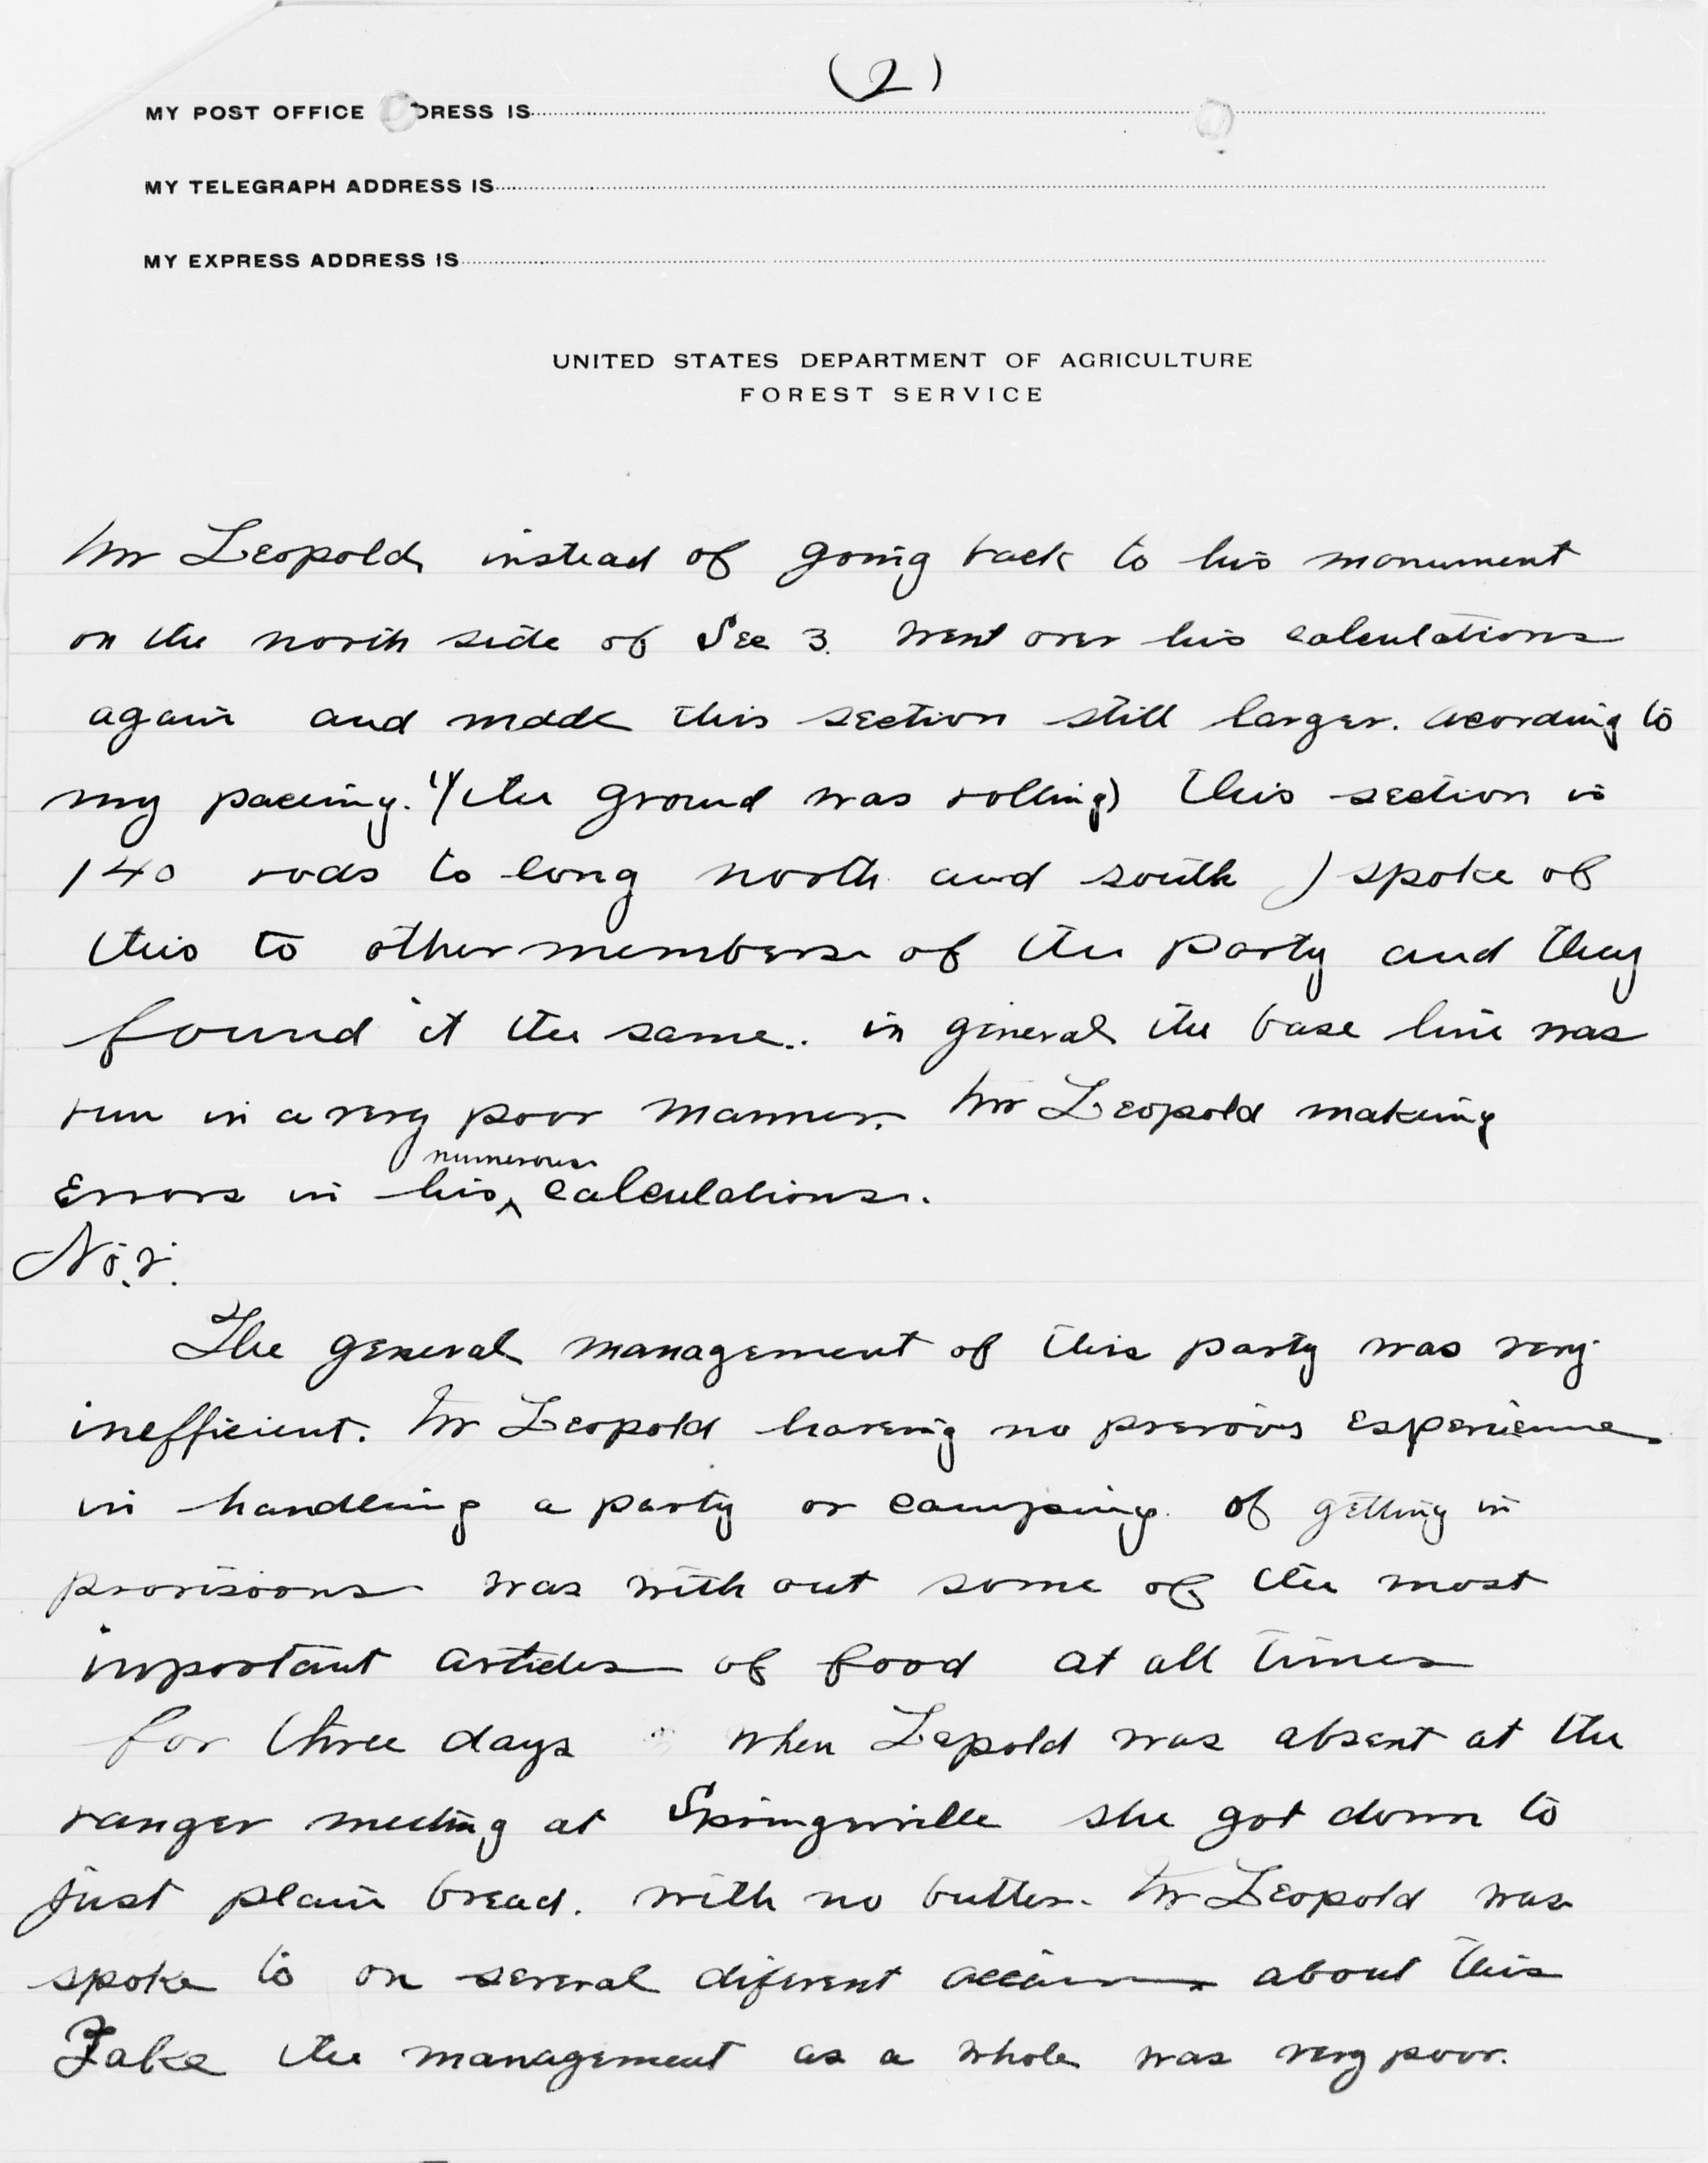 (2)
MY POST OFFICE ADDRESS IS
MY TELEGRAPH ADDRESS IS
MY EXPRESS ADDRESS IS
UNITED STATES DEPARTMENT OF AGRICULTURE
FOREST SERVICE
Mr Leopold instead of going back to his monument
on the north side of Sec 3. went over his calculations
again and made this section still larger. acording to
my paceing. (the ground was rolling) this section is
140 rods to long north and south I spoke of
this to other members of the party and they
found it the same.. in general the base line was
run in a very poor manner. Mr Leopold making
Errors in his numerous calculations.
No. 2.
The general management of this party was very
inefficient. Mr Leopold haveing no previous experience
in handleing a party or camping. of getting in
provisions was with out some of the most
important articles of food at all times
for three days when Lepold was absent at the
ranger meeting at Springerville she got down to
just plain bread. with no butter. Mr Leopold was
spoke to on several diferent about this
Take the management as a whole was very poor.